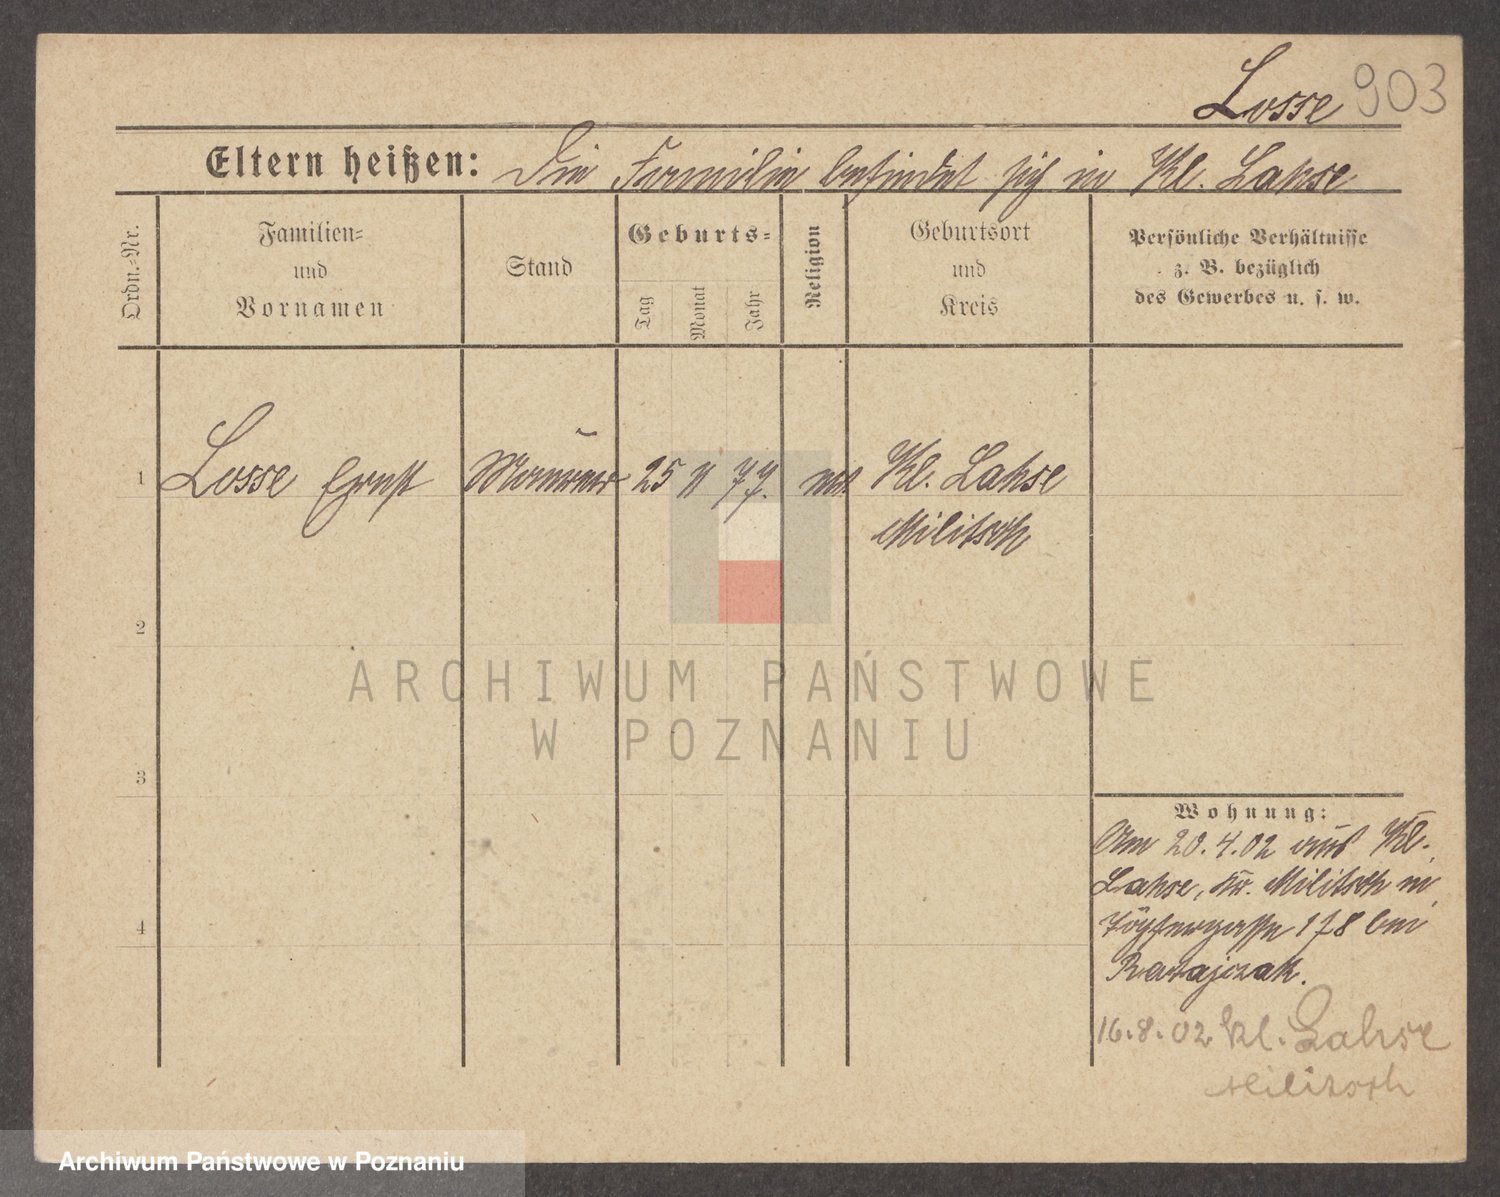 Losse 903
Eltern heißen: Die Familie befindet sich in Kl. Lahse
Ordn.-Nr.
Familien-
und
Vornamen
Stand
Geburts-
Tag
Monat
Jahr
Religion
Geburtsort
und
Kreis
Persönliche Verhältnisse
z. B. bezüglich
des Gewerbes u. s. w.
1 Losse Ernst Maurer 25 77. Kl. Lahse
Militsch
2
ARCHIWUM PAŃSTWOWE
W POZNANIU
3
Wohnung:
Am 20.4.02 aus Kl.
Lahse, Kr. Militsch in
4
Töpfergasse 178 bei
Ratajczak.
16.8.02 Kl. Lahse
Militsch
Archiwum Państwowe w Poznaniu